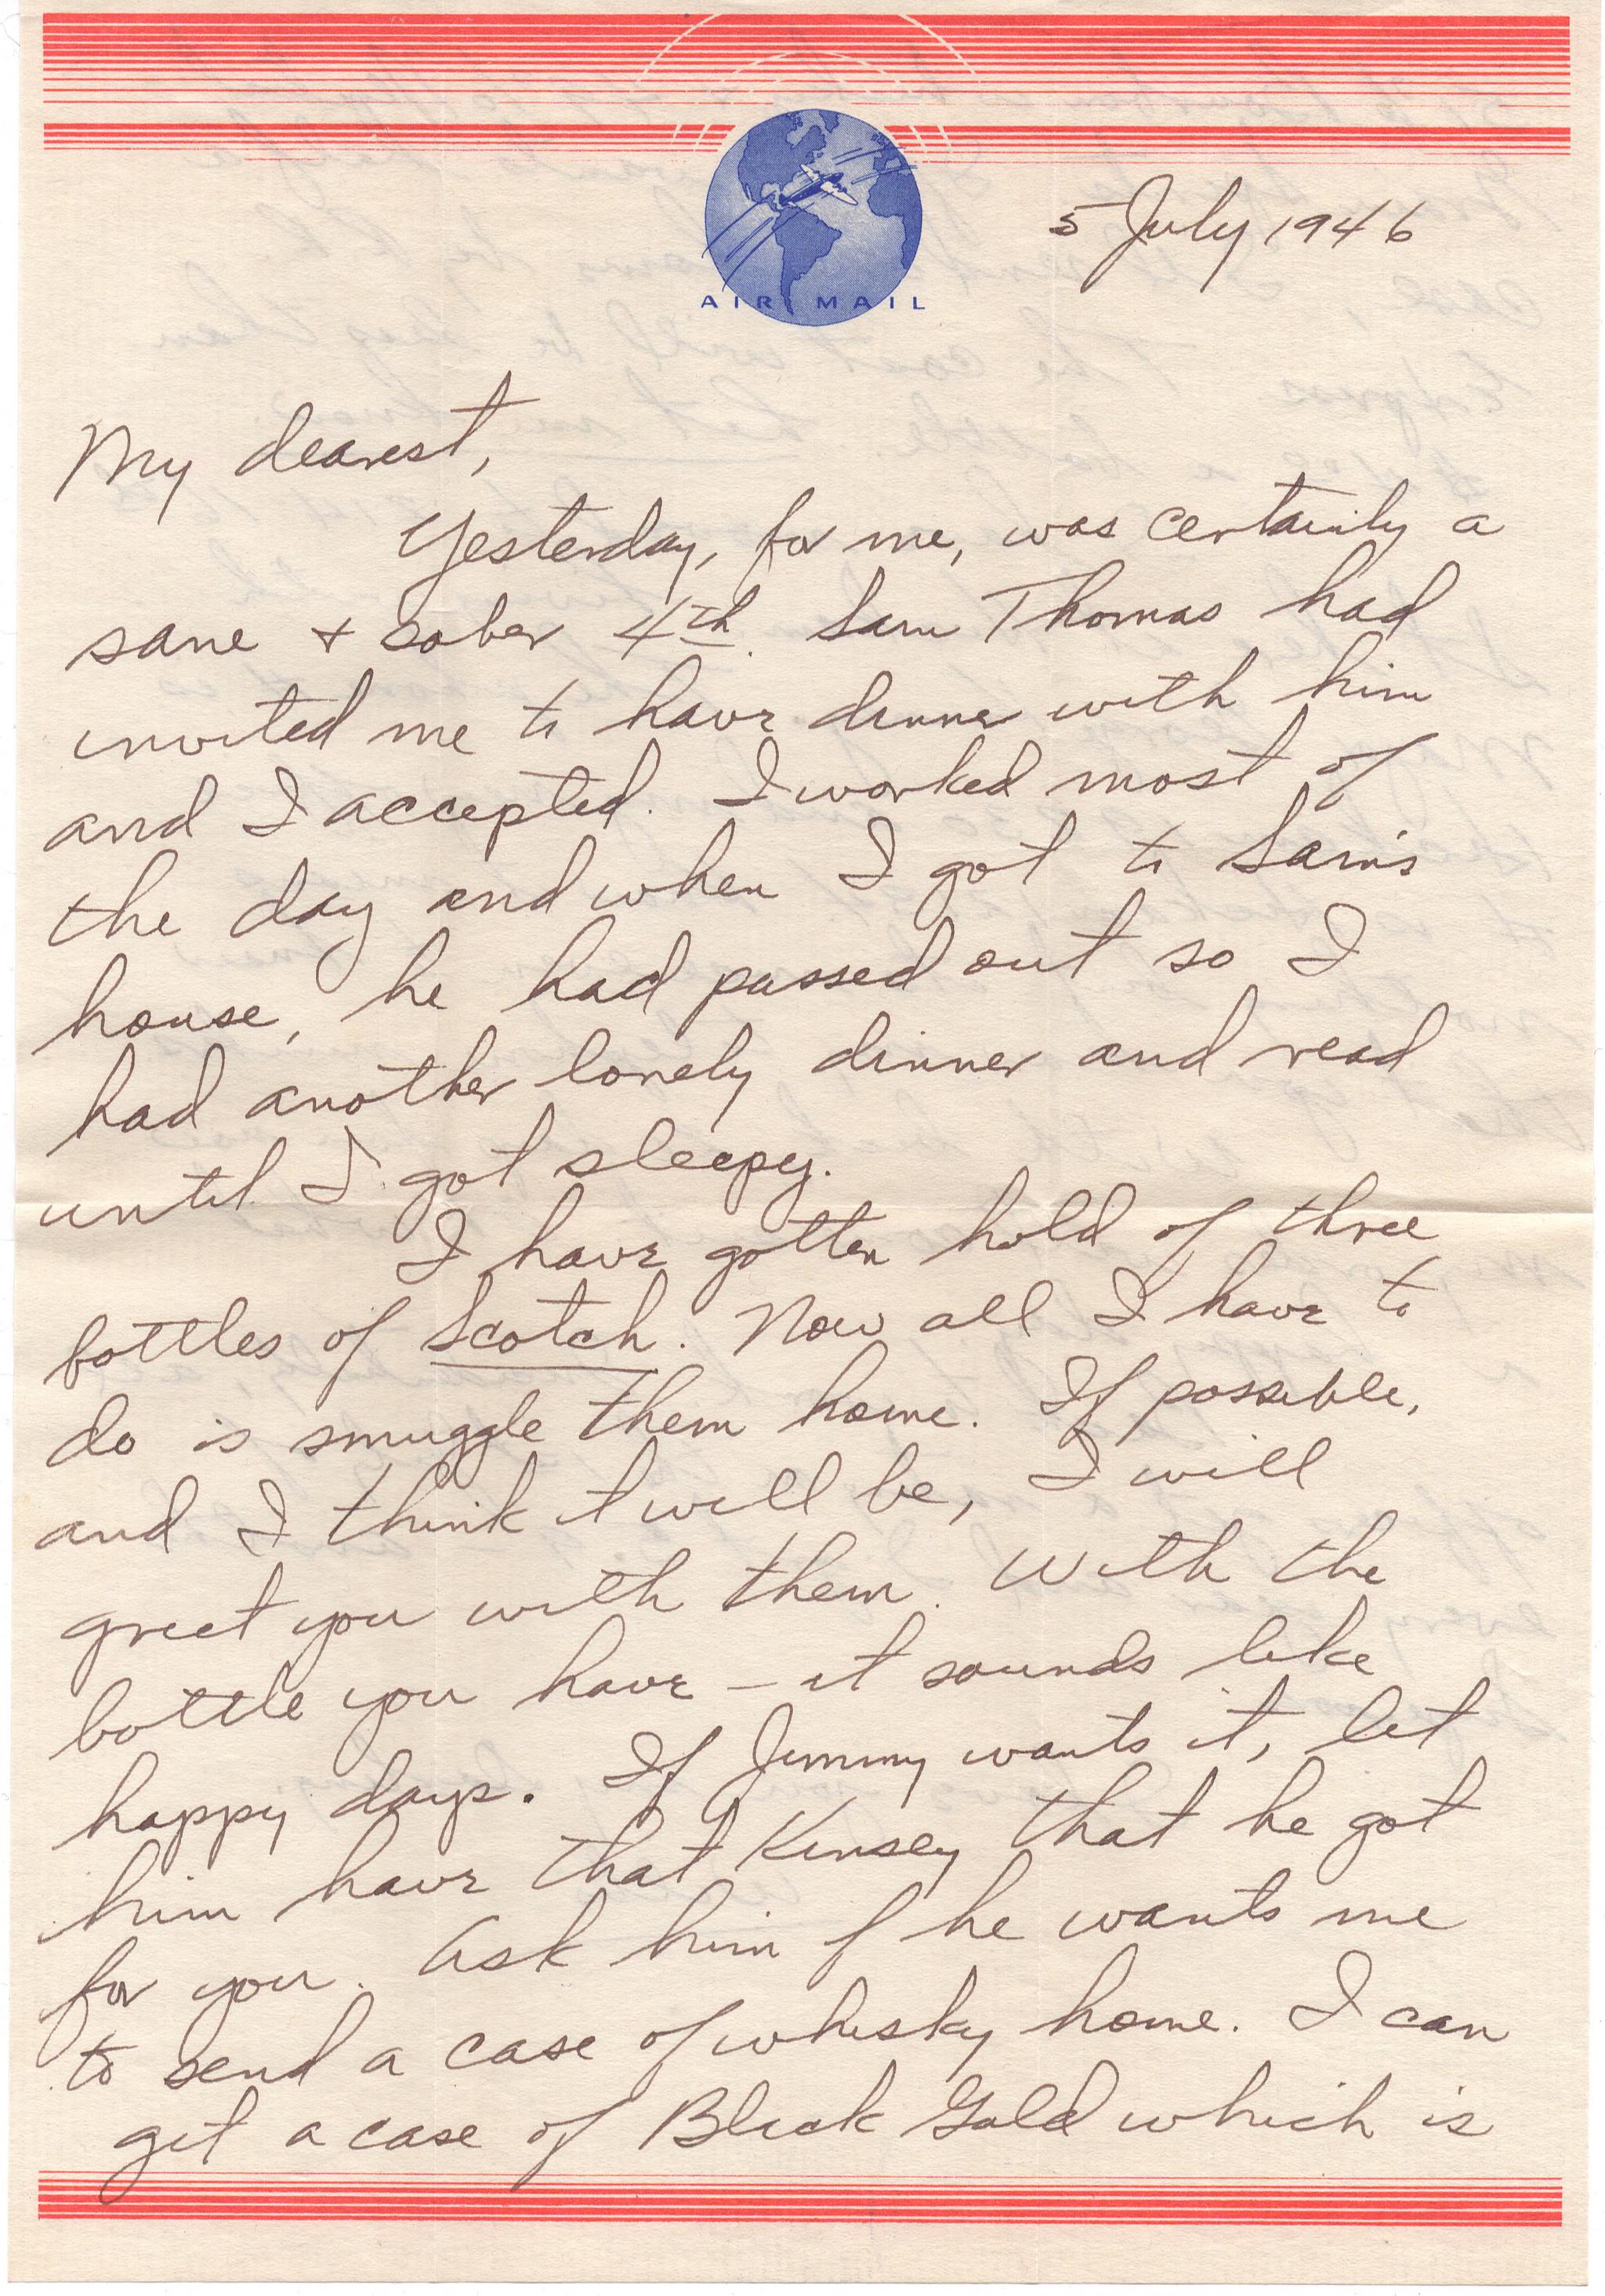 AIR MAIL
5 July 1946
My dearest,
Yesterday, for me, was certainly a
sane + sober 4th. Sam Thomas had
invited me to have dinner with him
and I accepted. I worked most of
the day and when I got to Sam's
house, he had passed out so I
had another lonely dinner and read
until I got sleepy.
I have gotten hold of three
bottles of Scotch. Now all I have to
do is smuggle them home. If possible,
and I think it will be, I will
greet you with them. With the
bottle you have – it sounds like
happy days. If Jimmy wants it, let
him have that Kinsey that he got
for you. Ask him if he wants me
to send a case of whisky home. I can
get a case of Black Gold which is